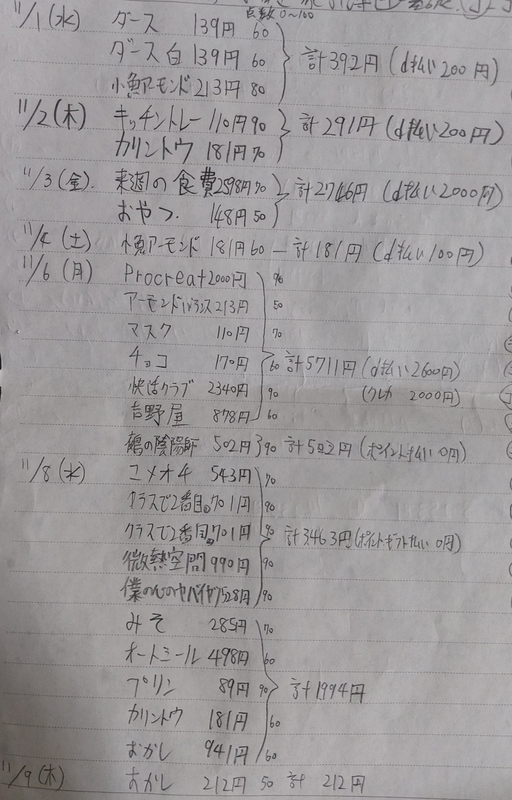 点数0~100
11/1(水) ダース 139円 60
ダース白 139円 60 計392円(d払い200円)
小魚アーモンド 213円 80
11/2(木) キッチントレー 110円 90 計291円(d払い200円)
カリントウ 181円 70
11/3(金). 来週の食費 2598円 70 計2746円(d払い2000円)
おやつ. 148円 50
11/4(土) 小魚アーモンド 181円 60 ― 計181円(d払い100円)
11/6(月) Procreat 2000円 90
アーモンドバランス 213円 50
マスク 110円 70
チョコ 170円 60 計5711円(d払い2600円)
快活クラブ 2340円 90 (クレカ 2000円)
吉野屋 878円 60
鶴の陰陽師 502円 90 計502円(ポイント払い0円)
11/8(水) コメオ4 543円 70
クラスで2番目。701円 90
クラスで2番目。701円 90 計3463円(ポイントギフト払い0円)
微熱空間 990円 90
528円 90
みそ 285円 70
オートミール 498円 60
プリン 89円 90 計1994円
カリントウ 181円 60
おかし 941円 60
11/9(木) おかし 212円 50 計 212円